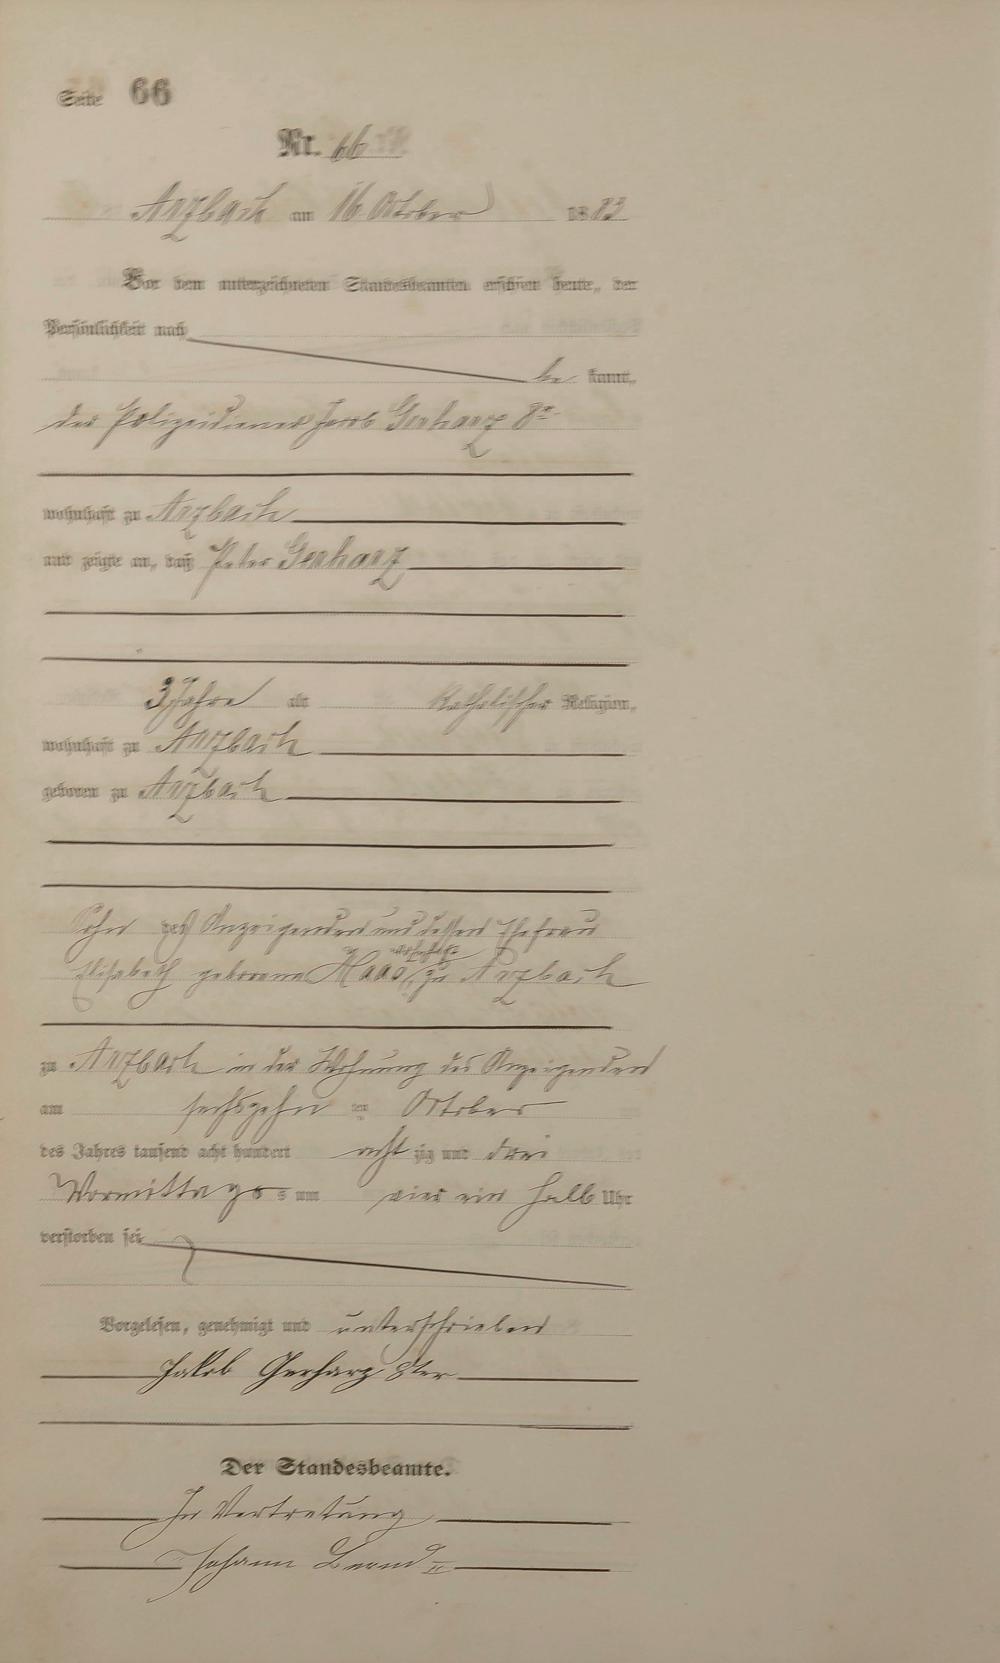 Seite 66
Nr. 66
Arzbach am 16 October 1883
Vor dem unterzeichneten Standesbeamten erschien heute, der
Persönlichkeit nach
be kannt,
der Polizeidiener Jacob Gerharz 8r
wohnhaft zu Arzbach
und zeigte an, daß Peter Gerharz
3 Jahre alt katholischer Religion,
wohnhaft zu Arzbach
geboren zu Arzbach
Sohn des Anzeigenden und dessen Ehefrau
wohnhaft
Elisabeth geborene Haas, zu Arzbach
zu Arzbach in der Wohnung des Anzeigenden
am sechszehn ten October
des Jahres tausend acht hundert acht zig und drei
Vormittags s um vier ein halb Uhr
verstorben sei
Vorgelesen, genehmigt und unterschrieben
Jakob Gerharz 8ter
Der Standesbeamte.
In Vertretung
Johann Bernd II